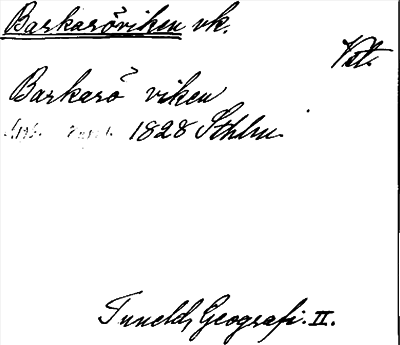 Barkaröviken vk.
Vst.
Barkarö viken
1828 Sthlm.
Tuneld, Geografi. II.